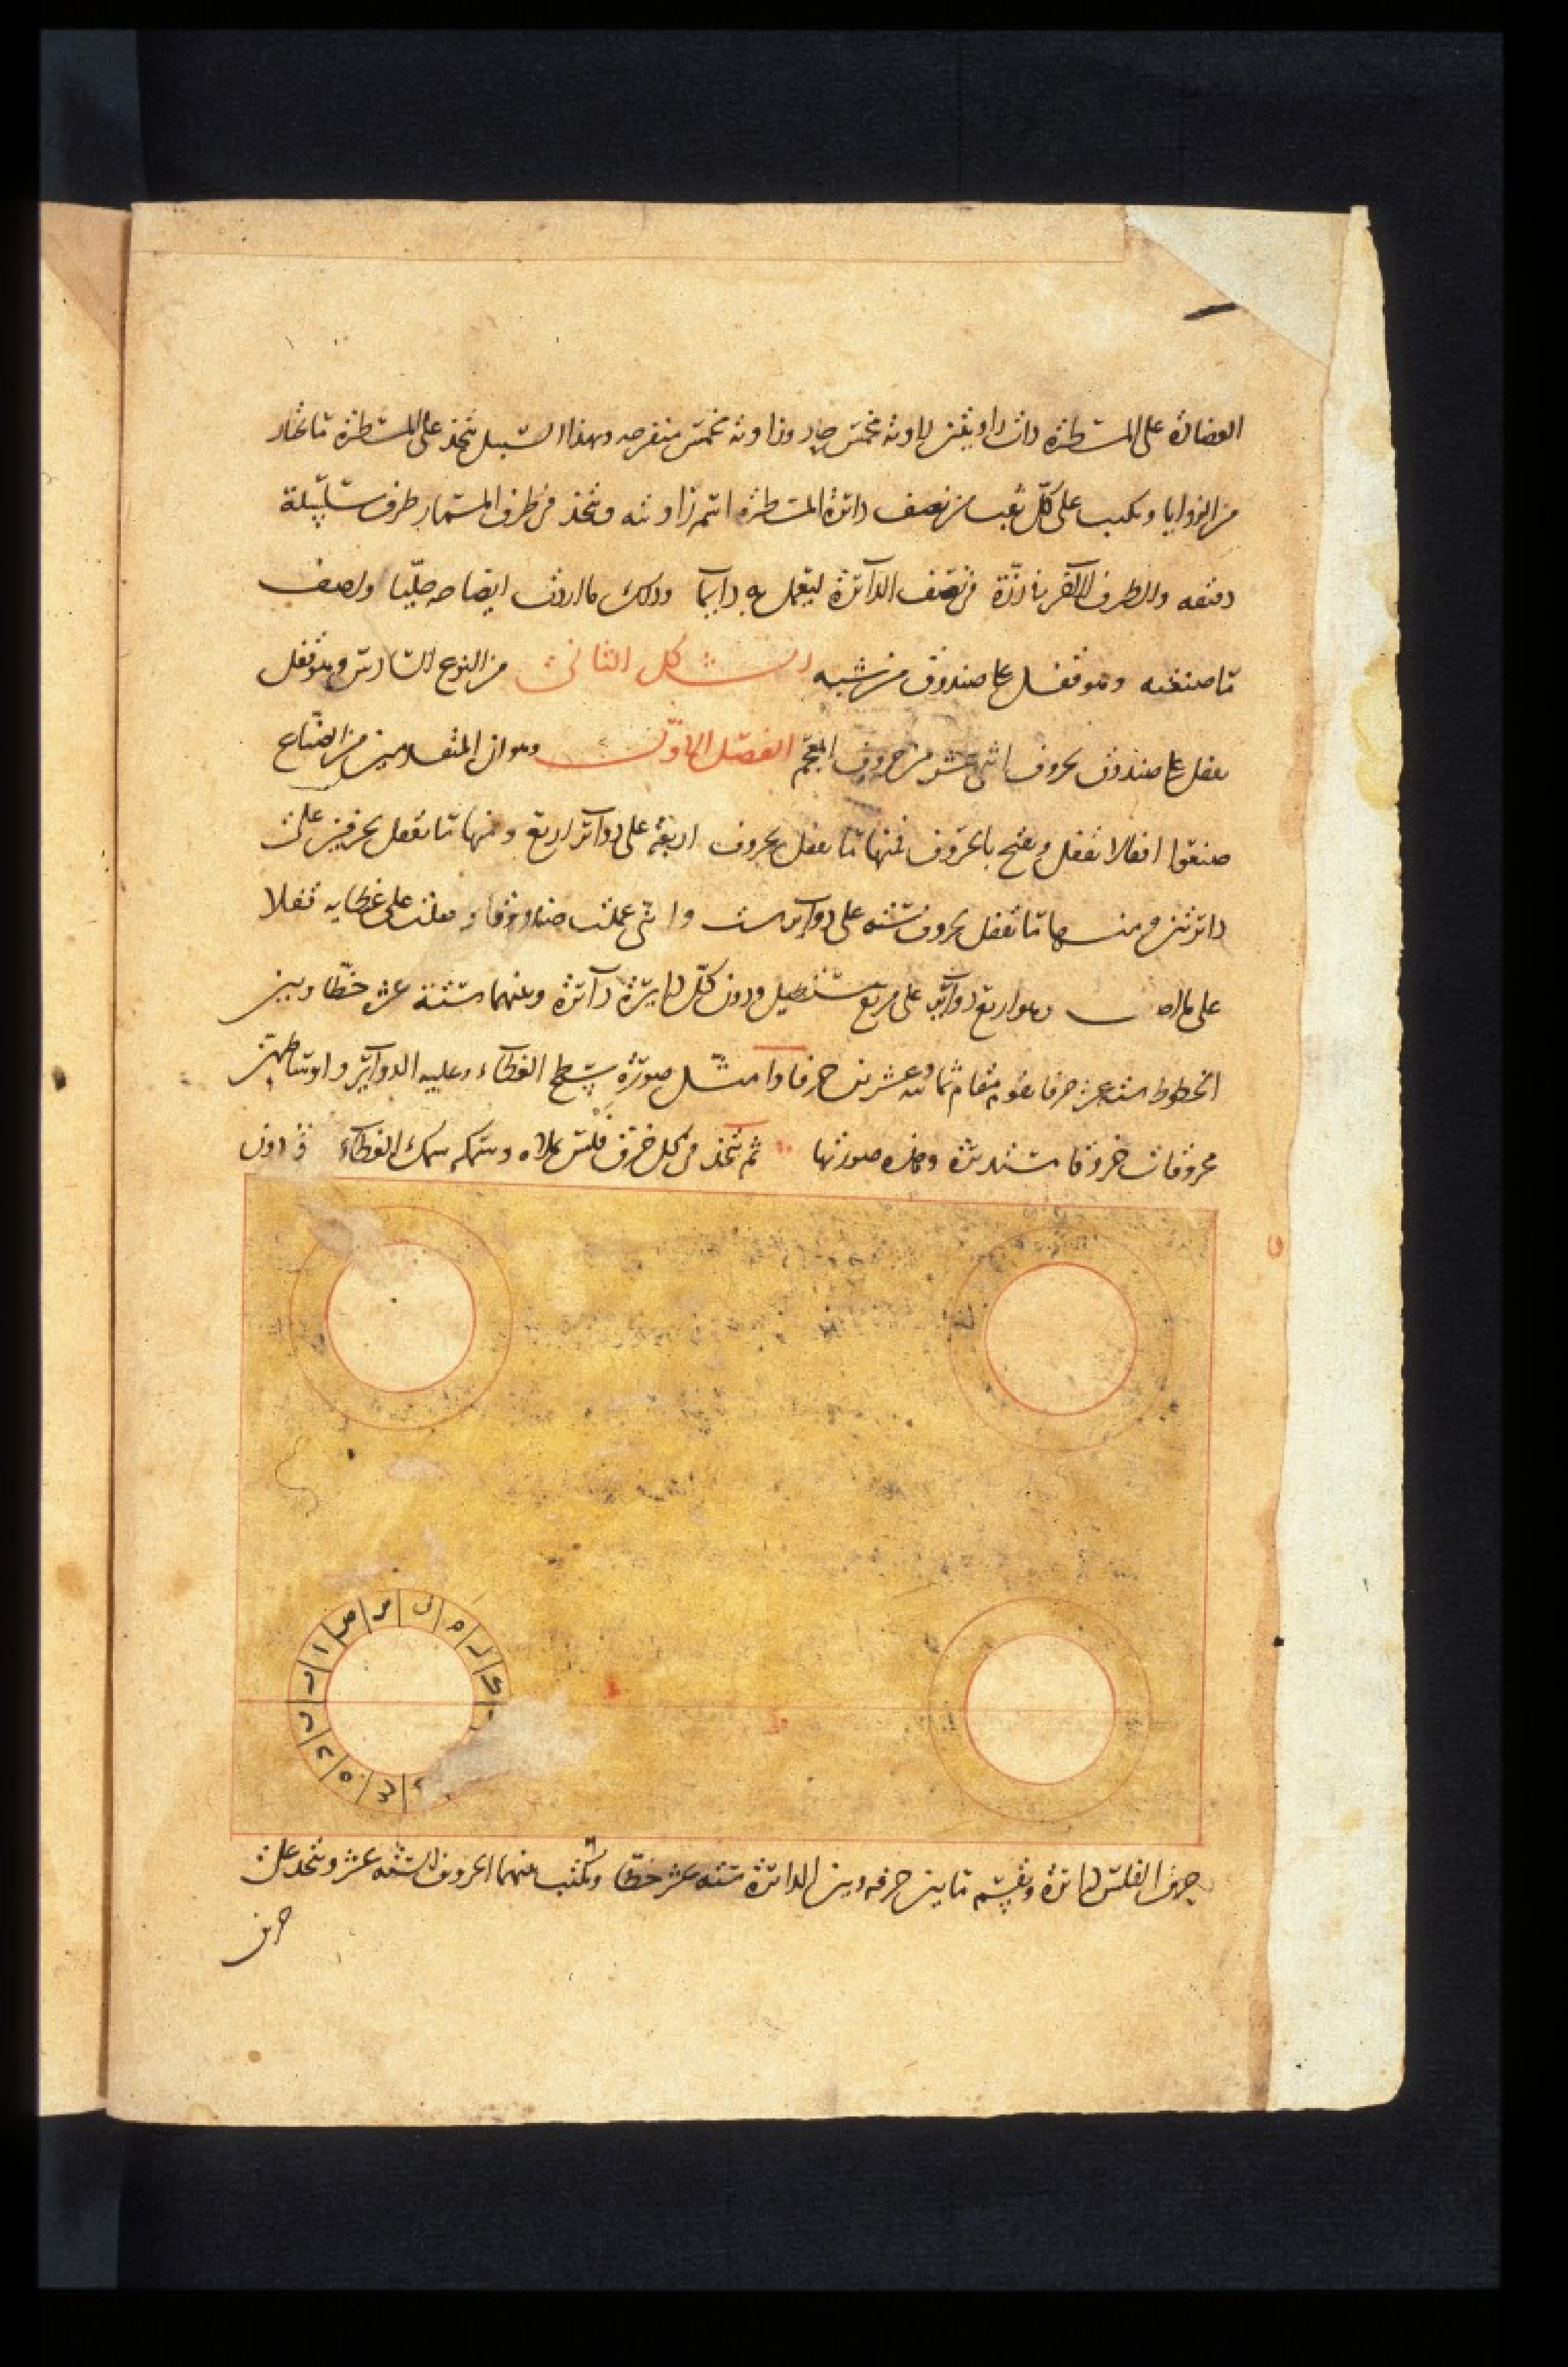 العضادة على المسطرة ذات زاويتين زاوية مخمس حادة وزاوية مخمس منفرجه وبهذا السبيل يتخذ على المسطرة ما يختار
من الزوايا ويكتب على كل ثقب من نصف دائرة المسطرة اسم زاويته ويتخذ في طرف المسمار طرف سلسلة
دقيقه والطرف الآخر في رزة في نصف الدائرة ليعمل به دايما وذلك ما اردت ايضاحه جليا ولنصف
ما صنعته وهو قفل على صندوق من شبه الشكل الثاني من النوع السادس وهو قفل
يقفل على صندوق بحروف اثنى عشر من حروف المعجم الفصل الاول وهو ان المتقدمين من الصناع
صنعوا اقفالا تقفل وتفتح بالحروف فمنها ما يقفل بحروف اربعة على دوآئر اربع ومنها ما يقفل بحرفين على
دائرتين ومنها ما يقفل بحروف ستة على دوآير ست واني عملت صندوقا وعملت على غطايه قفلا
على ما اصف وهو اربع دوآئر على مربع مستطيل ودون كل دايرة دآئرة وبينهما ستة عشر خطا وبين
الخطوط ستة عشر حرفا تقوم مقام ثمانية وعشرين حرفا وامثل صورة سطح الغطآء وعليه الدوآير واوساطهن
مخروقات خروقا مستديرة وهذه صورتها ثم يتخذ في كل خرق فلس يملاه وسمكه سمك الغطآء ودون
ص م ل ه
ا
ح ه
حرف الفلس دائرة ويقسم ما بين حرفه وبين الدائرة ستة عشر خطا ويكتب بينهما الحروف الستة عشر ويتخذ على
حرف